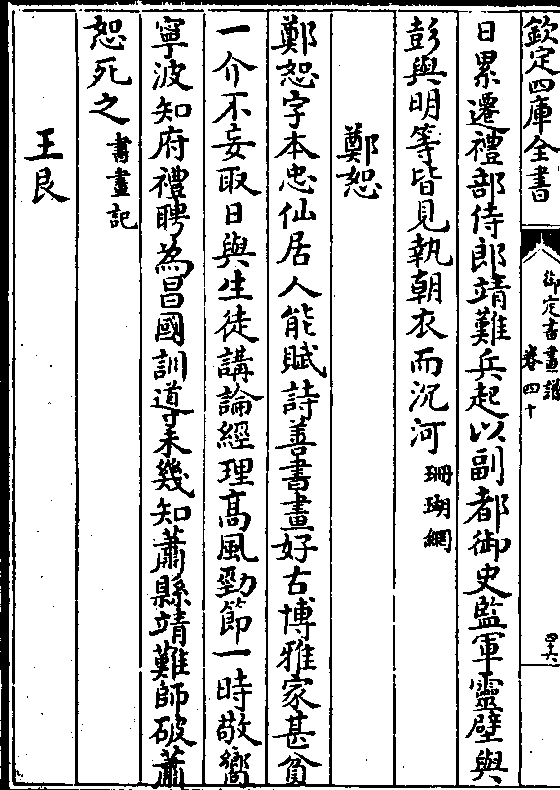 欽定四庫全書
御定書畫譜
卷四十
四六
日累遷禮部侍郎靖難兵起以副都御史監軍靈壁與
彭與明等皆見執朝衣而沉河珊瑚網
鄭恕
鄭恕字本忠仙居人能賦詩善書畫好古博雅家甚貧
一介不妄取日與生徒講論經理髙風勁節一時敬嚮
寧波知府禮聘為昌國訓導未幾知蕭縣靖難師破蕭
恕死之書畫記
王艮